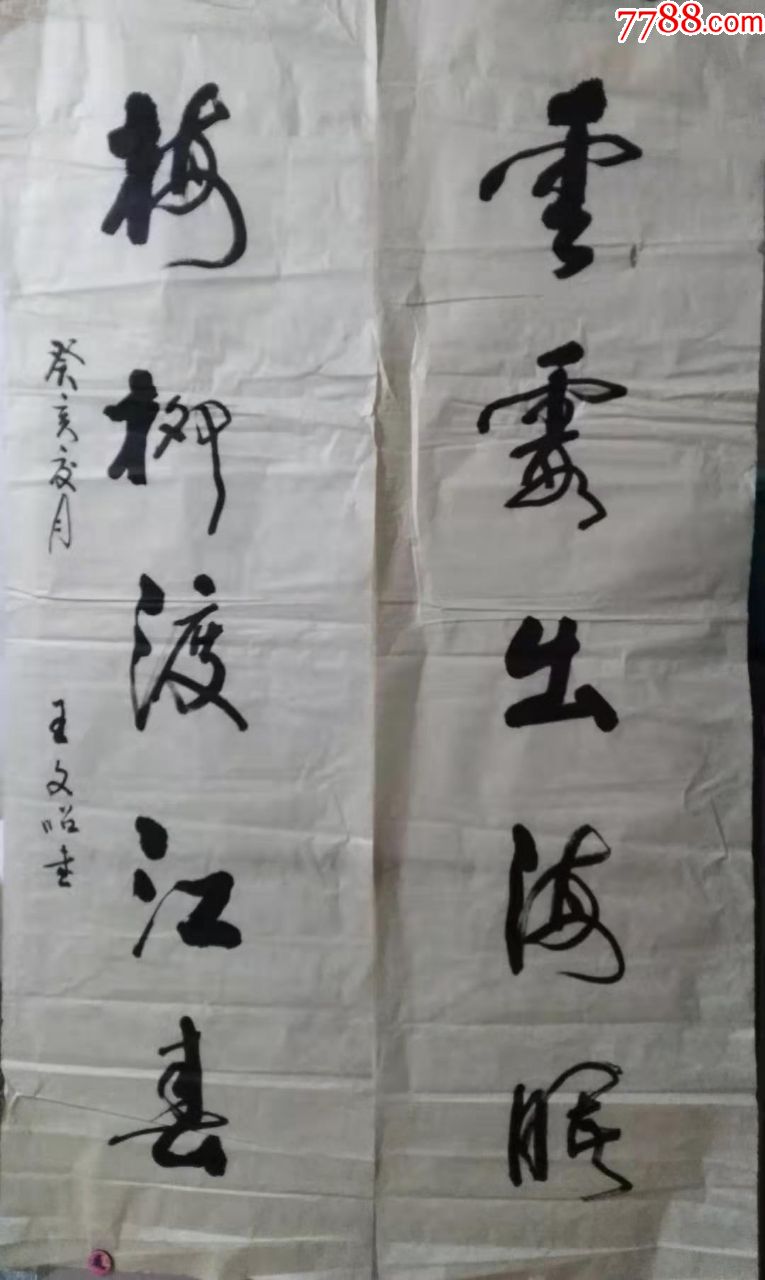 7788.com
雲霞出海曙
梅柳渡江春
癸亥夏月 王文昭書